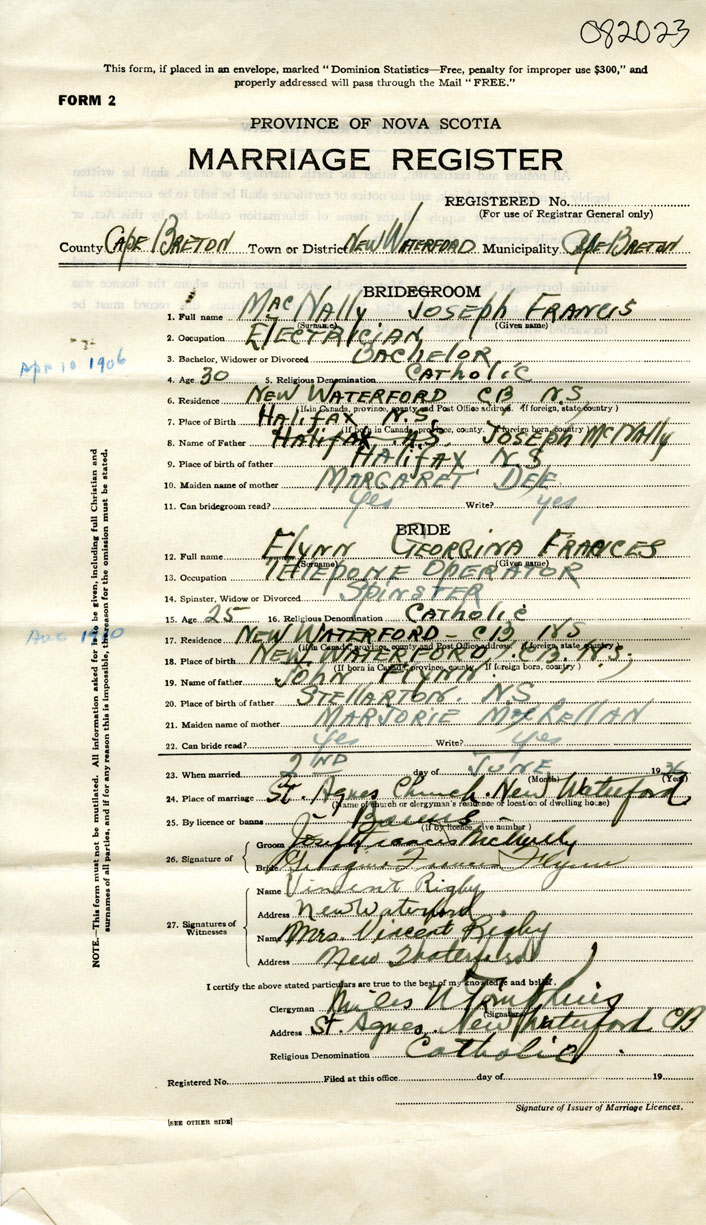 082023
This form, if placed in an envelope, marked "Dominion Statistics—Free, penalty for improper use $300," and
properly addressed will pass through the Mail "FREE."
FORM 2
PROVINCE OF NOVA SCOTIA
MARRIAGE REGISTER
REGISTERED No.
(For use of Registrar General only)
County Cape Breton Town or District New Waterford Municipality Cape Breton
BRIDEGROOM
1. Full name MacNally Joseph Francis
(Surname) (Given name)
2. Occupation Electrician
3. Bachelor, Widower or Divorced Bachelor
Apr 10 1906
4. Age 30 5. Religious Denomination Catholic
6. Residence New Waterford CB N.S
(If in Canada, province, county and Post Office address. If foreign, state country)
7. Place of Birth Halifax N.S.
(If born in Canada, province, county. If foreign born, country)
8. Name of Father Halifax N.S. Joseph McNally
9. Place of birth of father Halifax NS
10. Maiden name of mother Margaret Dee
11. Can bridegroom read? yes Write? yes
BRIDE
12. Full name Flynn Georgina Frances
(Surname) (Given name)
13. Occupation Telepone Operator
14. Spinster, Widow or Divorced Spinster
15. Age 25 16. Religious Denomination Catholic
Aug 1910
17. Residence New Waterford - CB, NS
(If in Canada, province, county and Post Office address. If foreign, state country)
18. Place of birth New Waterford, CB. N.S,
(If born in Canada, province, county. If foreign born, country)
19. Name of father John Flynn.
20. Place of birth of father Stellarton. NS
21. Maiden name of mother Marjorie MacLellan
22. Can bride read? yes Write? yes
23. When married 2nd day of June 1936
(Month) (Year)
24. Place of marriage St. Agnes Church. New Waterford
(Name of church or clergyman's residence or location of dwelling house)
25. By licence or banns Banns
(If by licence, give number)
26. Signature of
Groom Joseph Francis McNally
Bride Georgina Frances Flynn
27. Signatures of Witnesses
Name Vincent Rigby
Address New Waterford.
Name Mrs. Vincent Rigby
Address New Waterford
I certify the above stated particulars are true to the best of my knowledge and belief.
Clergyman Miles N Tompkins
(Signature)
Address St. Agnes. New Waterford CB
Religious Denomination Catholic.
Registered No. Filed at this office day of 19
Signature of Issuer of Marriage Licences.
[SEE OTHER SIDE]
NOTE.—This form must not be mutilated. All information asked for is to be given, including full Christian and
surnames of all parties, and if for any reason this is impossible, the reason for the omission must be stated.